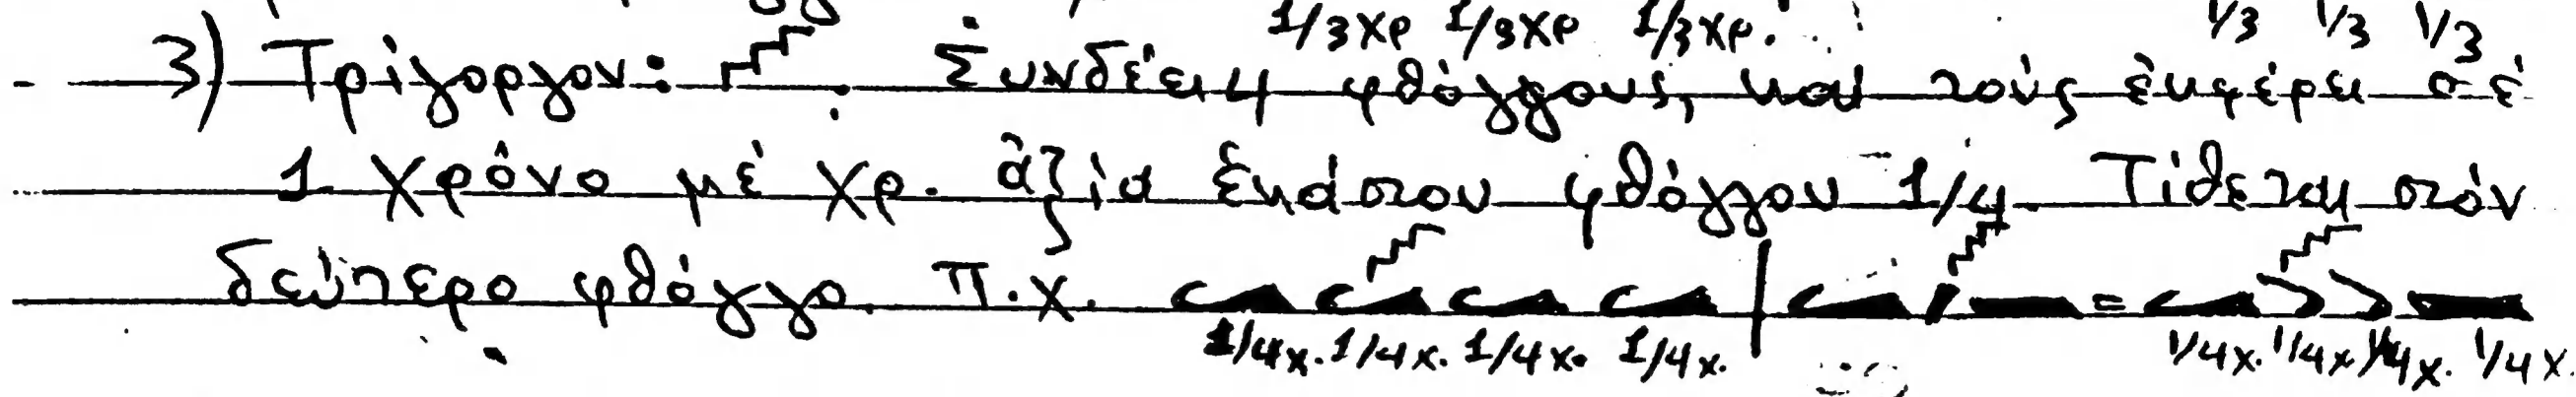 1/3 χρ 1/3 χρ 1/3 χρ. 1/3 1/3 1/3
3) Τρίγοργον: . Συνδέει 4 φθόγγους, καί τούς ἐκφέρει σέ
1 χρόνο μέ χρ. ἀξία ἑκάστου φθόγγου 1/4. Τίθεται στόν
δεύτερο φθόγγο. π.χ. =
1/4χ. 1/4χ. 1/4χ. 1/4χ. 1/4χ. 1/4χ. 1/4χ. 1/4χ.